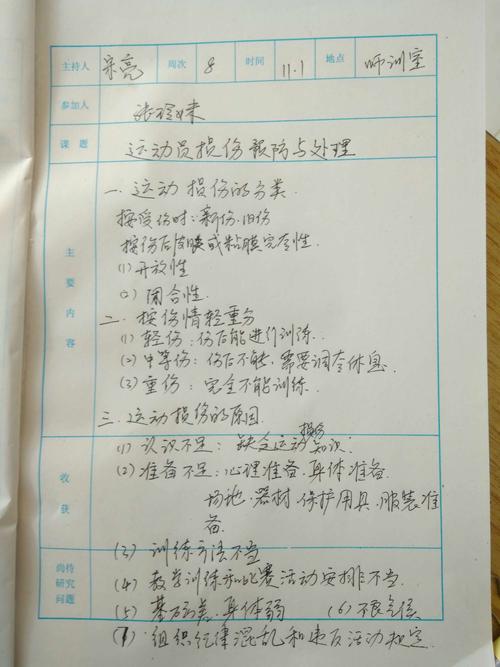 主持人 宋亮 周次 8 时间 11.1 地点 师训室
参加人
课题 运动员损伤预防与处理
主要内容
一、运动损伤的分类
按受伤时：新伤、旧伤
按伤后皮膜或粘膜完整性.
(1) 开放性
(2) 闭合性.
二、按伤情轻重分
(1) 轻伤：伤后能进行训练.
(2) 中等伤：伤后不能, 需要调养休息.
(3) 重伤：完全不能训练.
三、运动损伤的原因
收获
(1) 认识不足：缺乏运动损伤知识.
(2) 准备不足：心理准备、身体准备
场地、器材、保护用具、服装准
备.
(3) 训练方法不当
尚待研究问题
(4) 教学训练和比赛活动安排不当.
(5) 基础差、身体弱 (6) 不良气候
(7) 组织纪律混乱和违反活动规定.